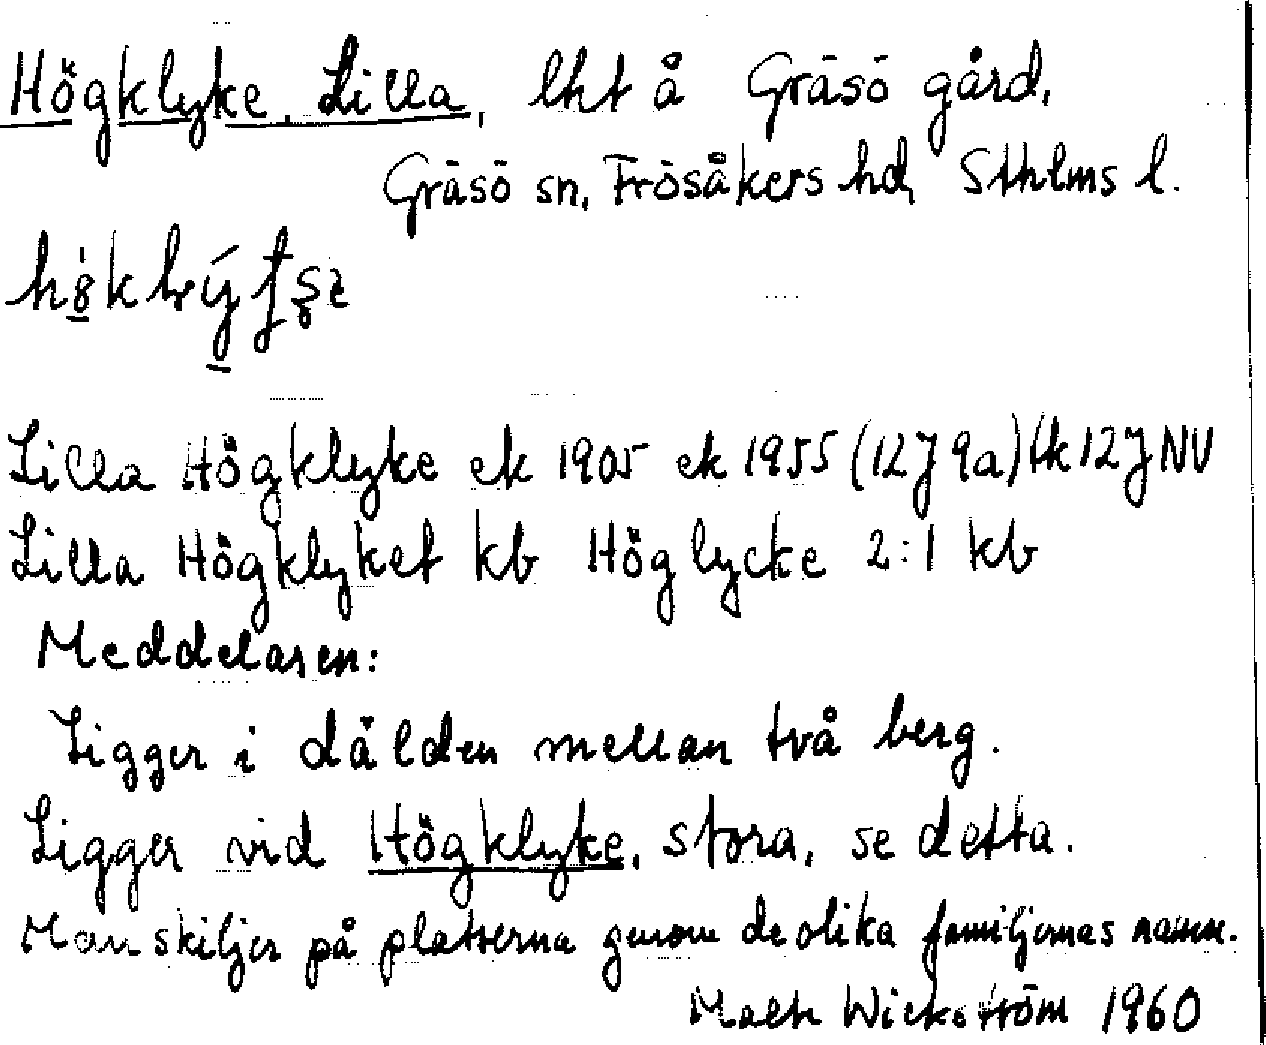 Högklyke, Lilla, lht å Gräsö gård,
Gräsö sn, Frösåkers hd, Sthlms l.
Lilla Högklyke ek 1905 ek 1955 (12J 9a) tk 12J NV
Lilla Högklyket kb Höglycke 2:1 kb
Meddelaren:
Ligger i dälden mellan två berg.
Ligger vid Högklyke, stora, se detta.
Man skiljer på platserna genom de olika familjernas namn.
Wickström 1960